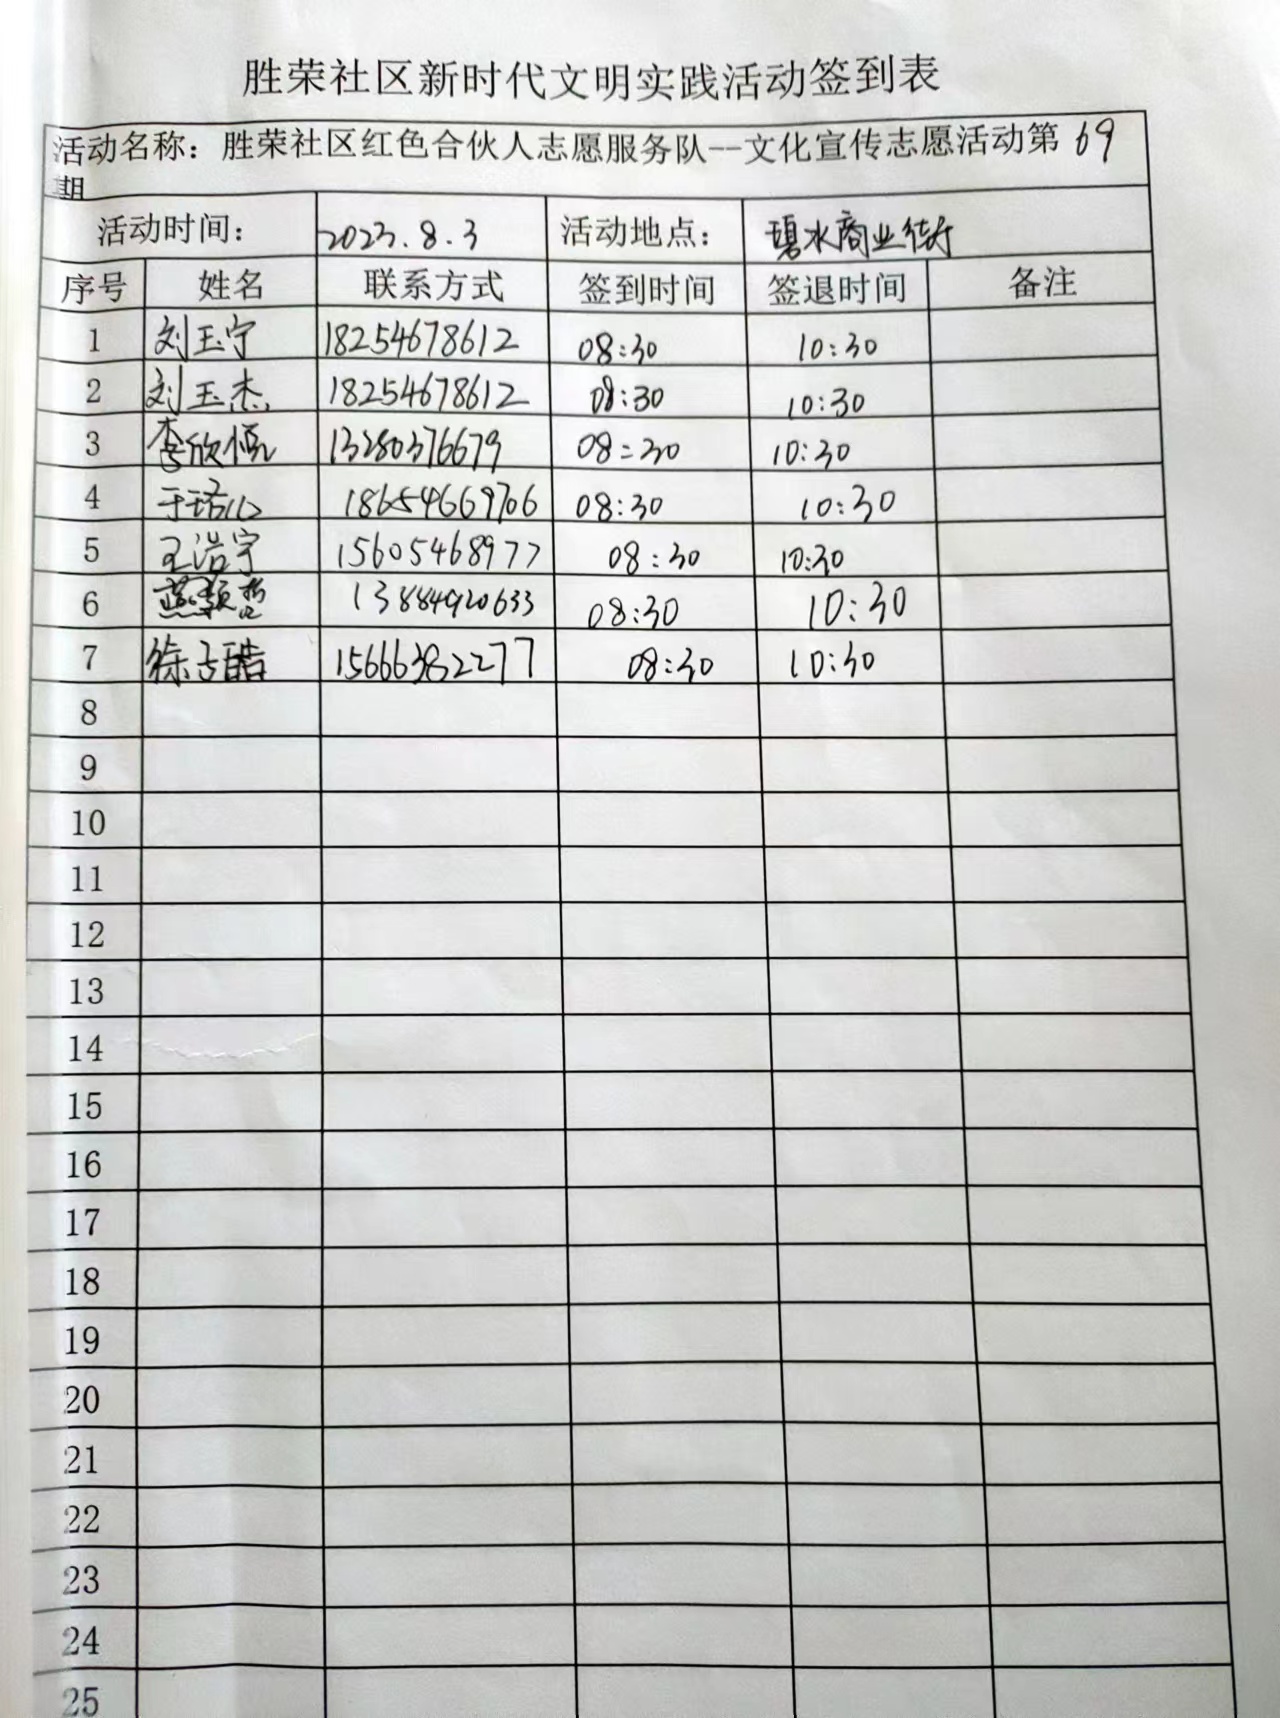 胜荣社区新时代文明实践活动签到表
活动名称：胜荣社区红色合伙人志愿服务队--文化宣传志愿活动第69
期
活动时间： 2023.8.3 活动地点： 碧水商业街
序号 姓名 联系方式 签到时间 签退时间 备注
1 刘玉宁 18254678612 08:30 10:30
2 刘玉杰 18254678612 08:30 10:30
3 李欣悦 13280376679 08:30 10:30
4 于珺心 18654669706 08:30 10:30
5 王浩宇 15605468977 08:30 10:30
6 13884920633 08:30 10:30
7 徐子皓 15666382277 08:30 10:30
8
9
10
11
12
13
14
15
16
17
18
19
20
21
22
23
24
25